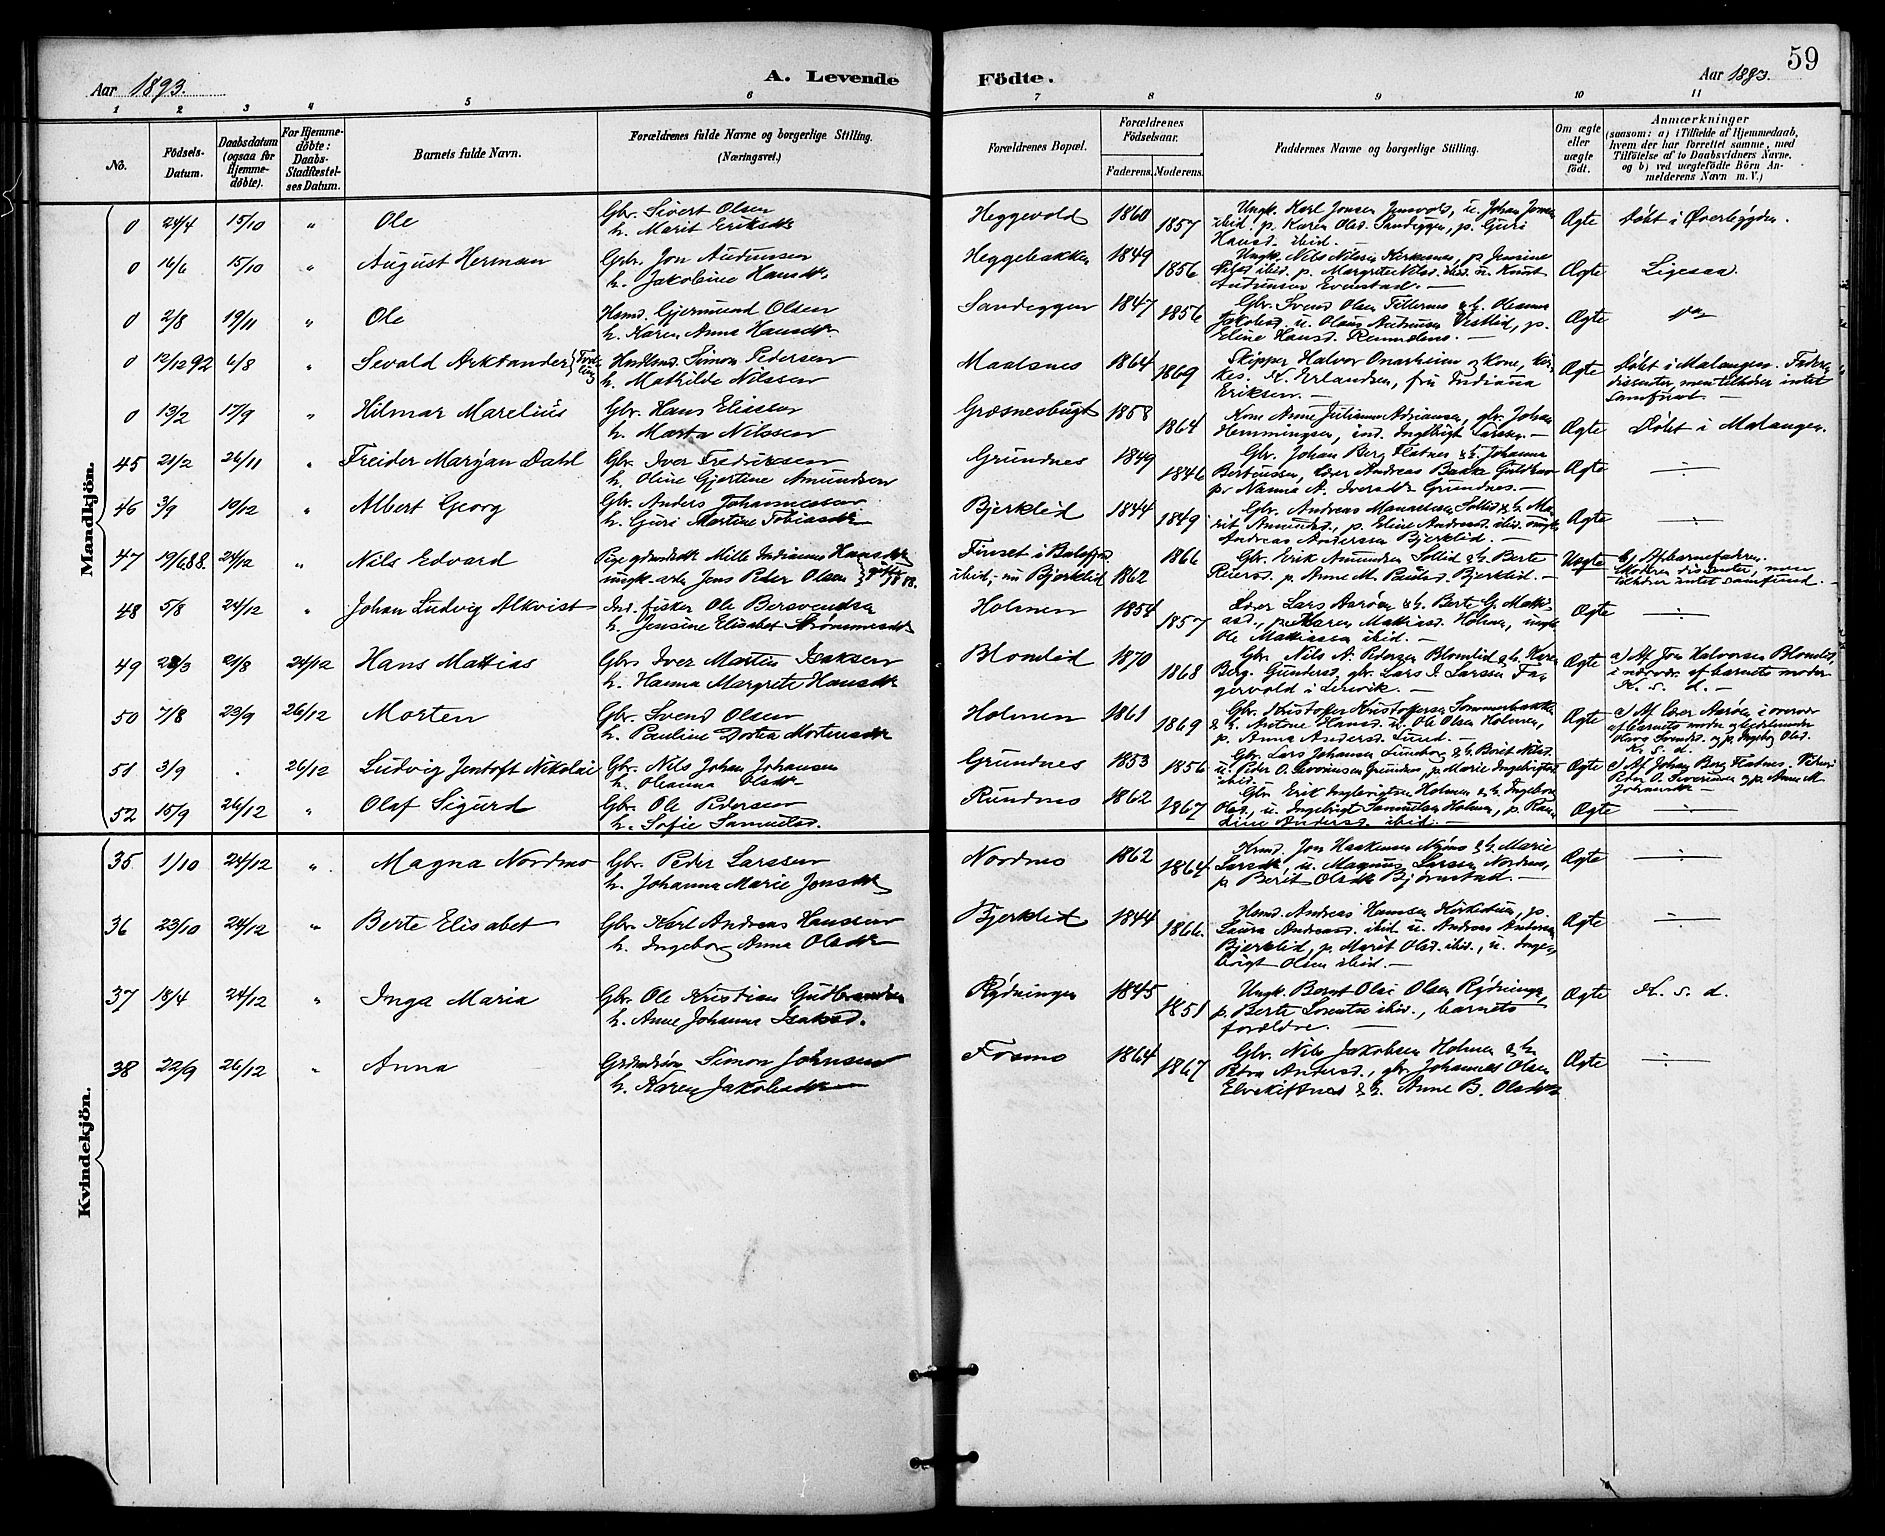 Aar 1893.
A. Levende
Födte.
Aar 1893.
59
1 2 3 4 5 6 7 8 9 10 11
No.
Födsels-
Datum.
Daabsdatum
(ogsaa for
Hjemme-
döbte).
For Hjemme-
döbte:
Daabs-
Stadfæstel-
ses Datum.
Barnets fulde Navn.
Forældrenes fulde Navne og borgerlige Stilling.
(Næringsvei.)
Forældrenes Bopæl.
Forældrenes
Födselsaar.
Faderens. Moderens.
Faddernes Navne og borgerlige Stilling.
Om ægte
eller
uægte
födt.
Anmærkninger
(saasom: a) i Tilfælde af Hjemmedaab,
hvem der har forrettet samme, med
Tilföielse af to Daabsvidners Navne,
og b) ved uægtefödte Börn An-
melderens Navn m. V.)
Mandkjön.
0 24/4 15/10 " Ole
Gbr. Sivert Olsen
h. Marit Eriksdt
Heggevold 1860 1857
Ungk. Karl Jonsen u. Johan Jonsen
ibid. p. Karen Olsd. Sandeggen, p. Guri
Hansd. ibid.
Ægte Döbt i Øverbygden.
0 16/6 15/10 " August Herman
Gbr. Jon Audunsen
h. Jakobine Hansdt.
Heggebakken 1849 1856
Ungk. Nils Nilsen Kirkesnes, p. Jensine
Nilsd. ibid. p. Margrete Nilsd. ibid. u. Knut
Audunsen Evenstad. —
Ægte Ligesaa.
0 2/8 19/11 " Ole
Hsmd. Gjermund Olsen
h. Karen Anna Hansdt.
Sandeggen 1847 1856
Gbr. Svend Olsen & h. Oleanna
Jakobsd. u. Olaus Audunsen Vestlid, p.
Eline Hansd.
Ægte
0 12/12 92 6/8 " Sevald Arktander
Simon Pedersen
h. Mathilde Nilssen
Maalsnes 1864 1869
Skipper Halvor Onarheim og kone,
K. Erlandsen, fru Indiana
Eriksen. —
Ægte Döbt i Malangen. Faderen
dissenter, men tilhörer intet
samfund. —
0 13/2 17/9 " Hilmar Marelius
Gbr. Hans Eliassen
h. Marta Nilssen
Græsnesbugt 1858 1864
Kone Anne Juliane Adriansen, gbr. Johan
Hemmingsen, ind. Ingebrigt Larssen. —
Ægte Döbt i Malangen.
45 21/2 26/11 " Freider Marÿan Dahl
Gbr. Iver Fredriksen
h. Oline Gjertine Amundsen
Grundnes 1849 1846
Gbr. Johan Berg Fletnes & h. Johanna
Berteussen, Lærer Andreas Bakke
p. Nanna A. Iversdt. Grundnes. —
Ægte —:—
46 3/9 10/12 " Albert Georg
Gbr. Anders Johannessen
h. Guri Martine Tobiasdt
Bjerklid 1844 1849
Gbr. Andreas Manuelsen Sollid & h. Ma-
rit Amundsd., p. Eline Andersd. ibid. ungk.
Andreas Anderssen Bjerklid. —
Ægte —:—
47 19/6 88. 24/12 " Nils Edvard
Pige Mille Indianna Hansdt
ungk. arb. Jens Peder Olsen
Finset i Balsfj.
ibid, nu Bjerklid 1862 1866
Gbr. Erik Amundsen Sollid & h. Berte
Reiersd. p. Anne M. Paulsd. Bjerklid. —
Uægte b) Af barnefaderen.
Moderen dissenter, men
tilhörer intet samfund. —
48 5/8 24/12 " Johan Ludvig Alkvist
Ind. fisker Ole Bersvendsen
h. Jensine Elisabet Strömmesdt
Holmen 1854 1857
Lærer Lars Aaröen & h. Berte G. Matti-
asd., p. Karen Mattiasd. Holmen, ungk.
Ole Mattiassen ibid. —
Ægte —:—
49 28/3 21/8 24/12 Hans Mattias
Gbr. Iver Martin Isaksen
h. Hanna Margrete Hansdt
Blomlid 1870 1868
Gbr. Nils A. Pedersen Blomlid & h. Karen
Berg. Gundersd, gbr. Lars I. Larssen Fa-
gervold i Lenvik. —
Ægte a) Af Jon Halvorsen Blomlid,
i nærvær. af barnets moder
K. s. d. —
50 7/8 23/9 26/12 Morten
Gbr. Svend Olsen
h. Pauline Dortea Mortensdt
Holmen 1861 1869
Gbr. Kristofer Kristofersen Sommerbakke
& h. Antone Hansd. u. Ole Olsen Holmen,
p. Anna Andersd. Lund. —
Ægte a) Af Lærer Aaröen i overvær
af barnets moder og bedstemoder
Svendsd. og p. Ingeborg Olsd.
K. s. d.
51 3/9 . 26/12 Ludvig Jentoft Nikolai
Gbr. Nils Johan Johansen
h. Oleanna Olsdt.
Grundnes 1853 1856
Gbr. Lars Johansen Lundberg & h. Berit Nilsd.
u. Peder O. Severinsen Grundnes, p. Marie Ingebrigtsd.
ibid.
Ægte a) Af Johan Berg Fletnes.
Peder O. Severinsen og p. Anne M.
Johansdt —
52 15/9 26/12 " Olaf Sigurd
Gbr. Ole Pedersen
h. Sofie Samuelsd.
Rundmo 1862 1867
Gbr. Erik Ingebrigtsen Holmen & h. Ingeborg
Olsd, u. Ingebrigt Samuelsen Holmen, p. Ran-
dine Andersd. ibid. —
Ægte —:—
Kvindekjön.
35 1/10 24/12 " Magna Nordmo
Gbr. Peder Larssen
h. Johanna Marie Jonsdt
Nordmo 1862 1864
Hsmd. Jon Haakensen Nymo & h. Marie
Larsdt, u. Magnus Larssen Nordmo,
p. Berit Olsdt Björnstad. —
Ægte —:—
36 23/10 24/12 " Berte Elisabet
Gbr. Karl Andreas Hanssen
h. Ingeborg Anna Olsdt
Bjerklid 1844 1866.
Hsmd. Andreas Hansen Kirkemo, p.
Laura Andreasd. ibid. u. Andreas Andersen
Bjerklid, p. Marit Olsd. ibid., u. Inge-
brigt Olsen ibid. —
Ægte —:—
37 18/4 24/12 " Inga Maria
Gbr. Ole Kristian Gudbrandsen
h. Anne Johanna Isaksd.
Rydningen 1845 1851
Ungk. Bernt Olai Olsen Rydningen,
p. Berte Lorentse ibid., barnets
forældre. —
Ægte K. s. d.
38 22/9 26/12 " Anna
Simon Johnsen
h. Karen Jakobsdt
Fosmo 1864 1867
Gbr. Nils Jakobsen Holmen & h.
Petra Andersd., gbr. Johannes Olsen
Elvekiftnes & h. Anne B. Olsdt.
Ægte —:—